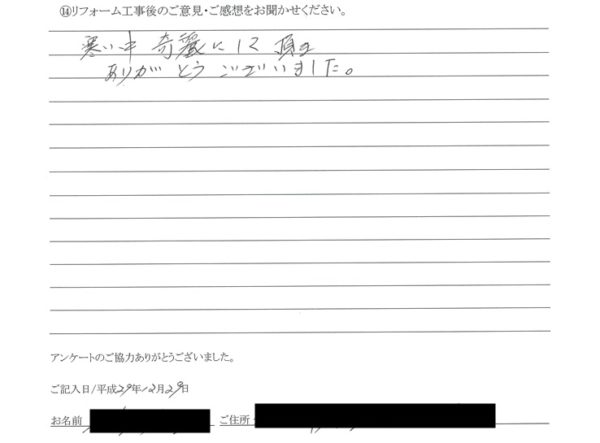 ⑭リフォーム工事後のご意見・ご感想をお聞かせください。
寒い中 奇麗にして頂き
ありがとうございました。
アンケートのご協力ありがとうございました。
ご記入日/平成29年12月29日
お名前 ご住所